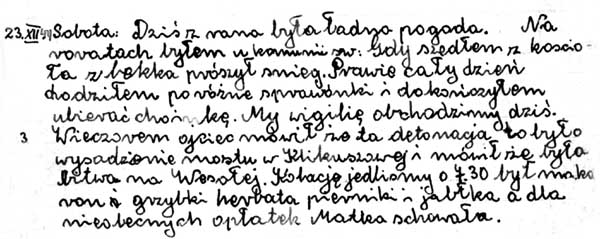 23.XII.44 Sobota: Dziś z rana była ładna pogoda. Na
roratach byłem u kamunii św: Gdy szedłem z koscio-
ła z lekka prószył snieg. Prawie cały dzień
chodziłem po różne sprawunki i dokończyłem
ubierać choinkę. My wigilię obchodzimy dziś.
3 Wieczorem ojciec mówił że ta detonacja to było
wysadzenie mostu w Klikuszowej i mówił że była
bitwa na Wesołej. Kolację jedliśmy o 7.30 był maka
ron i grzybki herbata pierniki i jabłka a dla
nieobecnych opłatek Matka schowała.